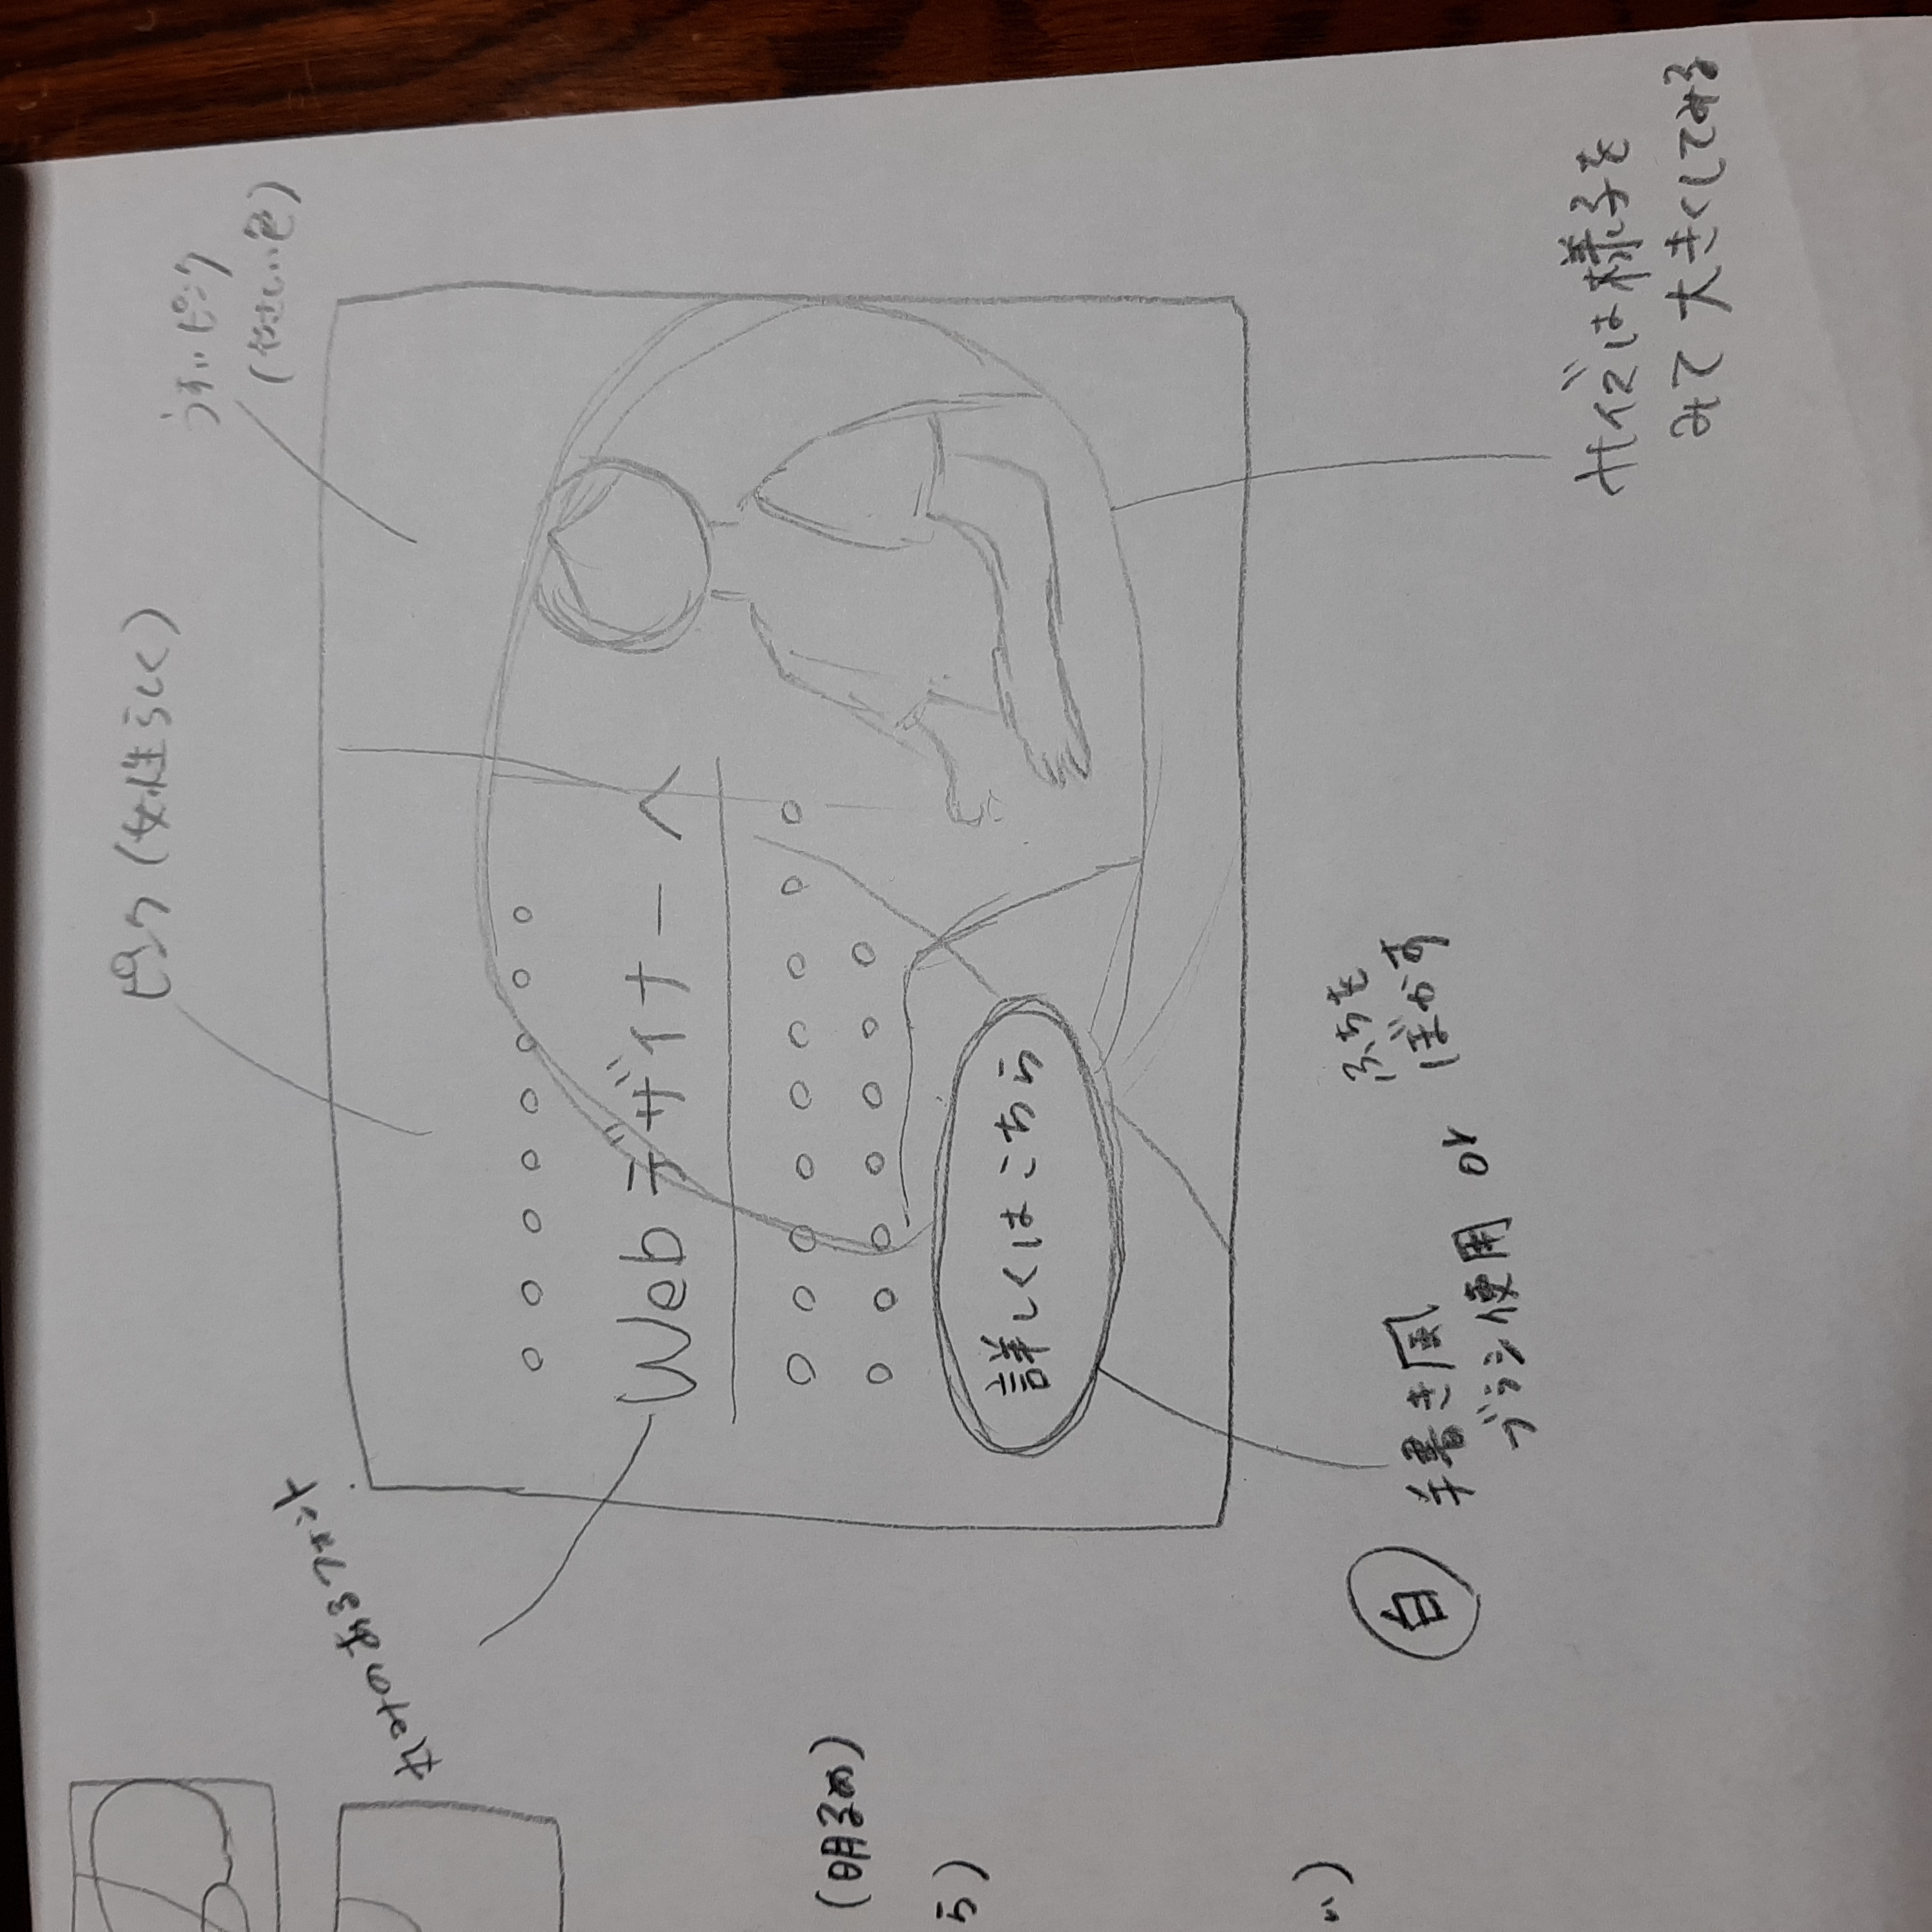 ピンク(女性らしく)
うすいピンク
(やさしい色)
丸みのあるフォント
○○○○○○○○
Webデザイナーへ
○○○○○○○○○
○○○○○○○
詳しくはこちら
(明るめ)
ら)
い)
白
手書き風
ブラシ使用 or
ふちを
ぼかす
サイズは様子を
みて大きくしてみる